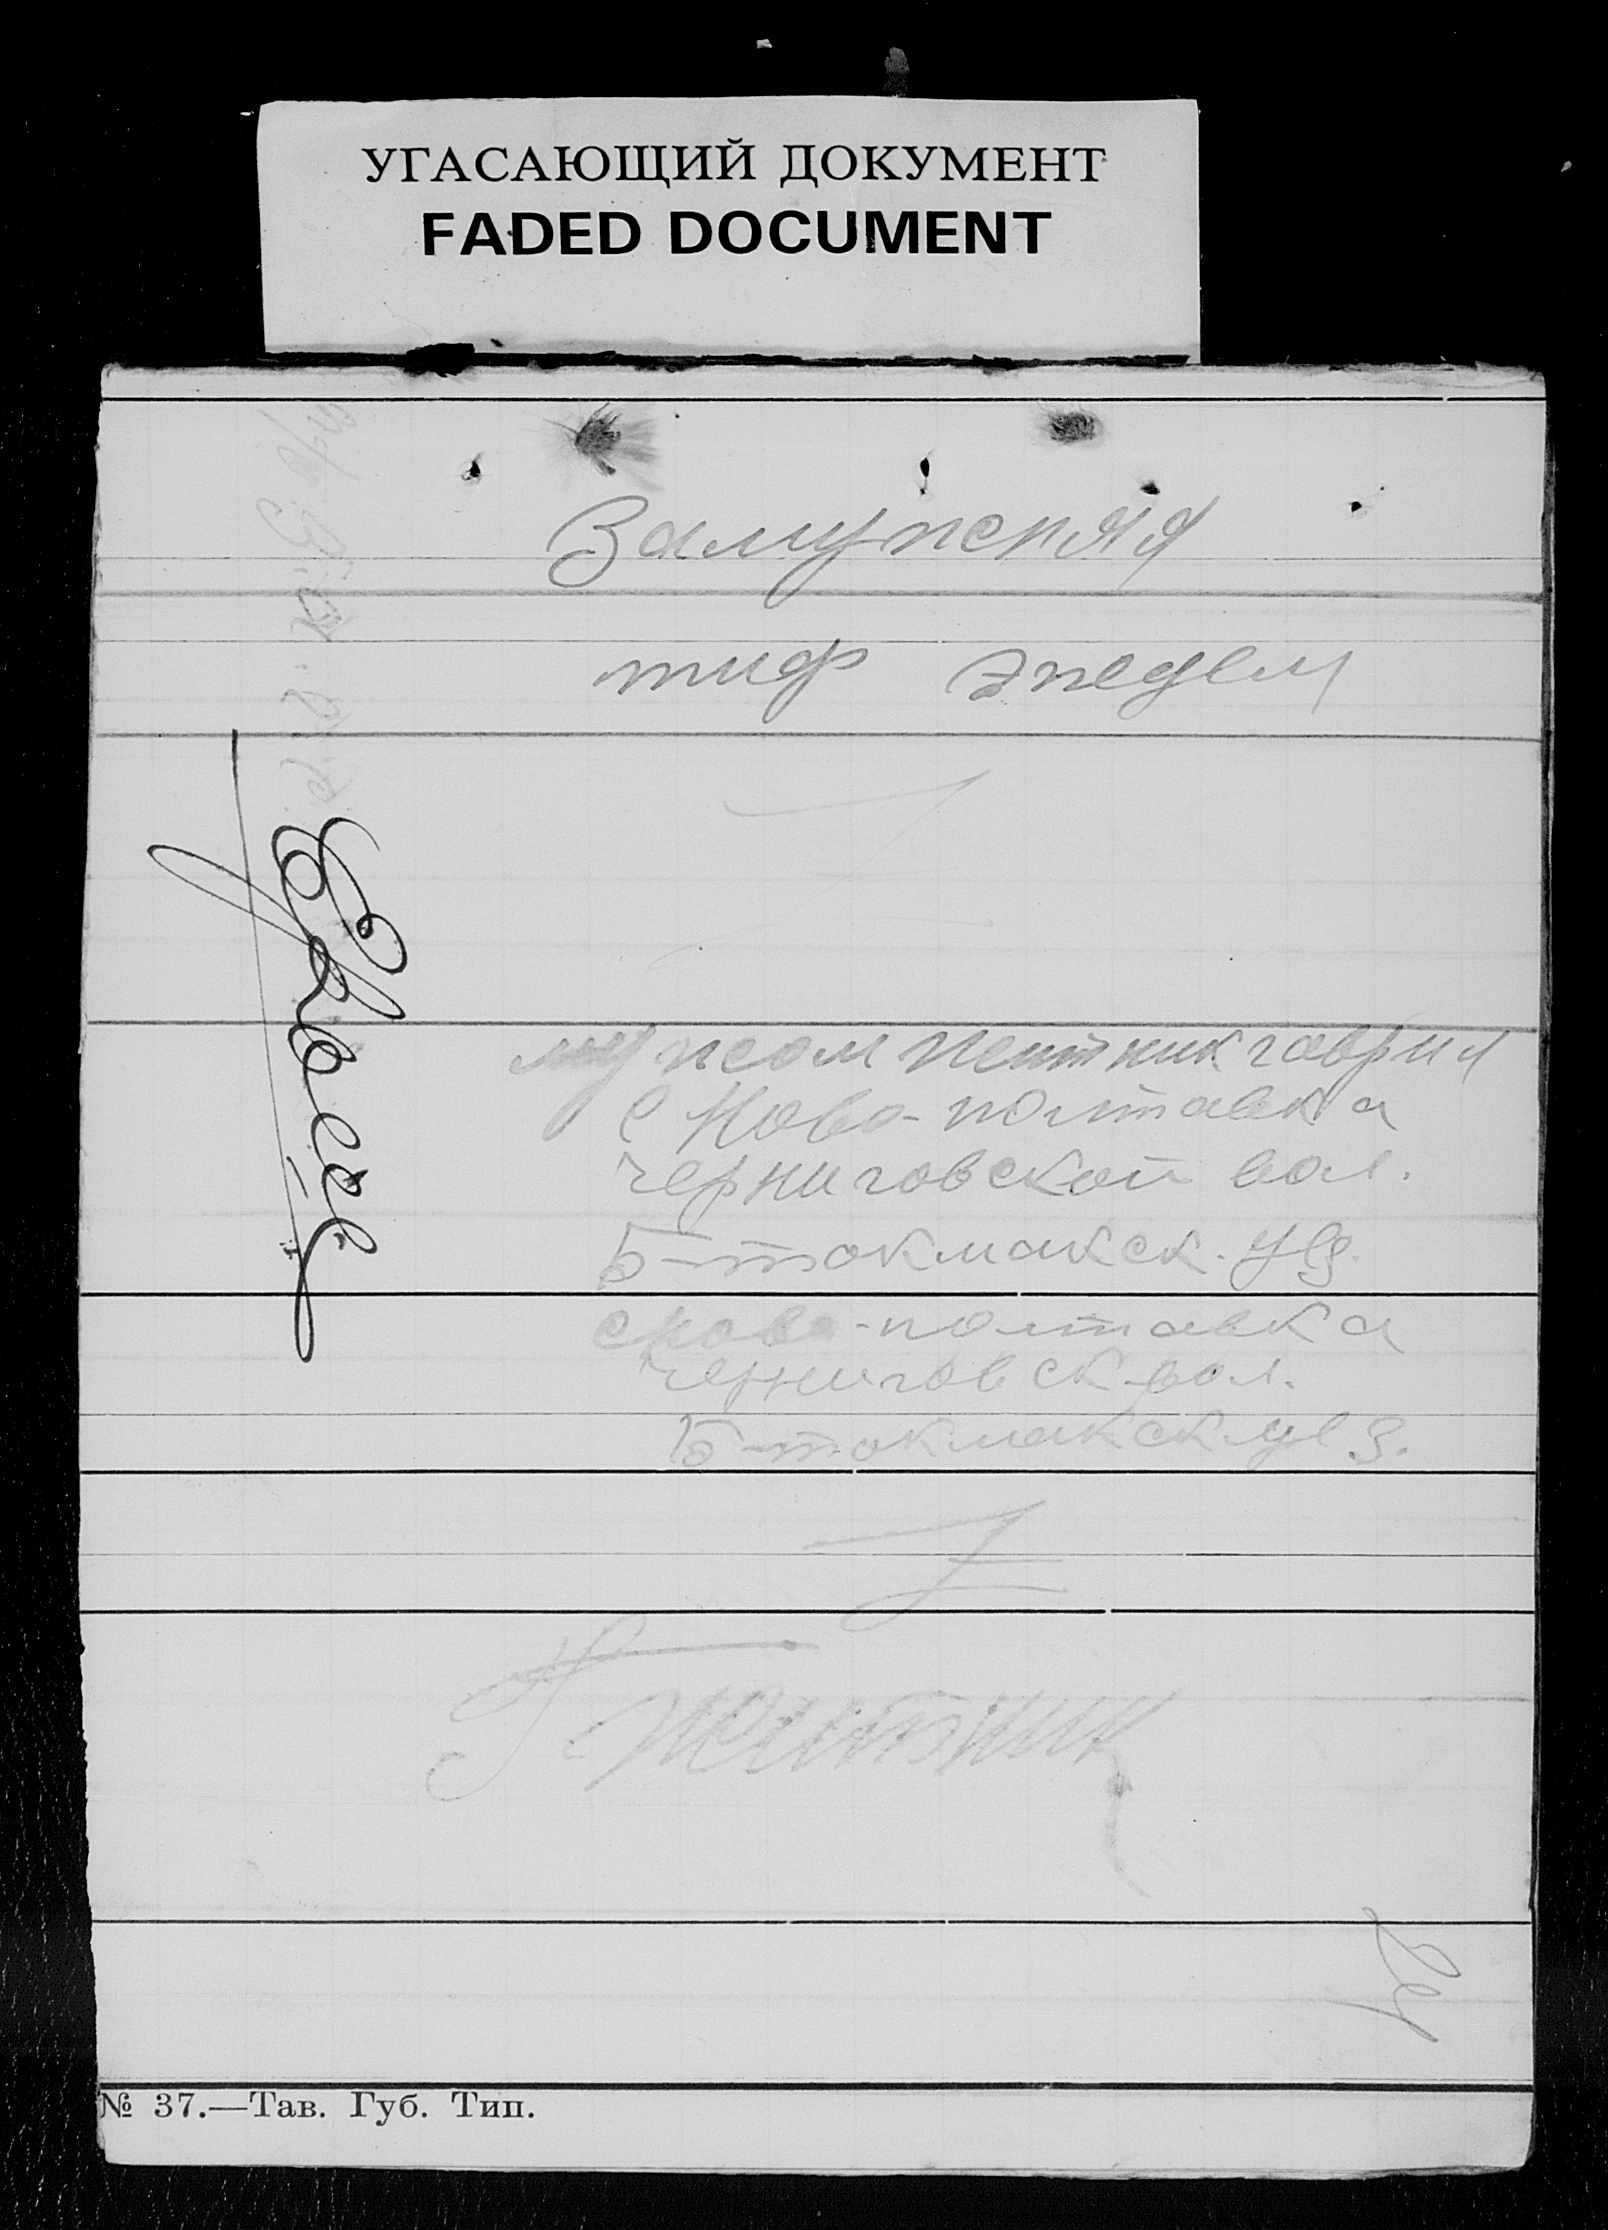 УГАСАЮЩИЙ ДОКУМЕНТ
FADED DOCUMENT
Замужняя
тиф эпедем
мужом Житник гаврил
с Ново-полтавка
черниговской вол.
Б-токмакск. уез.
с ново-полтавка
черниговск вол.
Б-токмакск уез.
Житник
№ 37.—Тав. Губ. Тип.